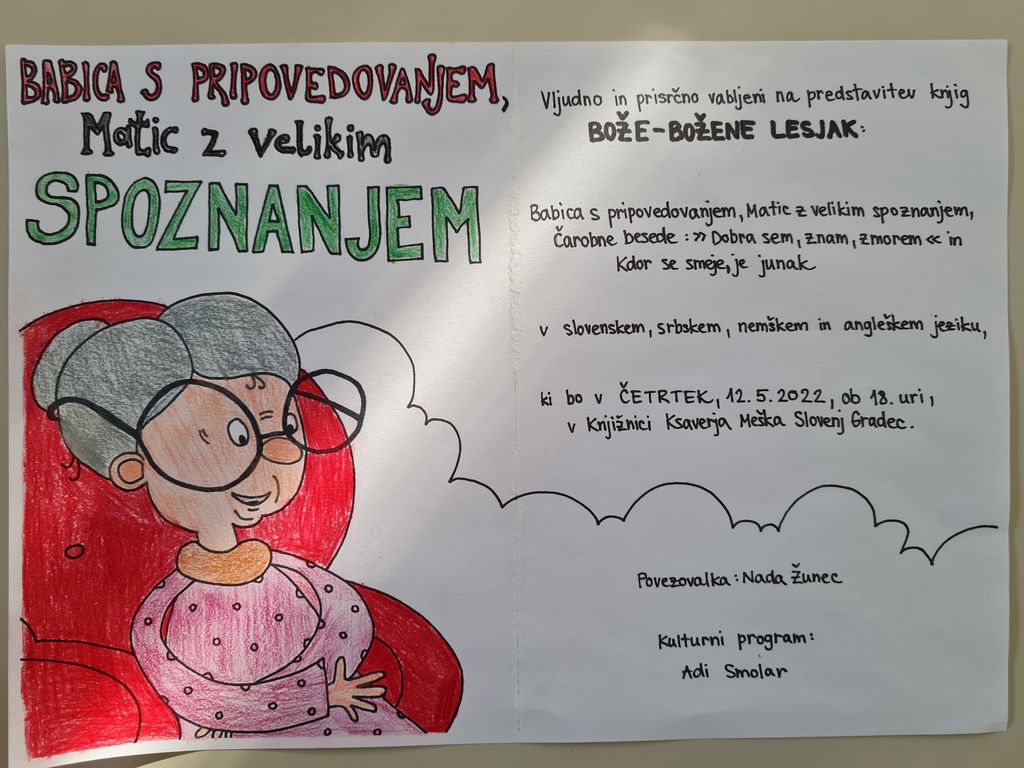 BABICA S PRIPOVEDOVANJEM,
Matic z velikim
SPOZNANJEM
Vljudno in prisrčno vabljeni na predstavitev knjig
BOŽE-BOŽENE LESJAK:
Babica s pripovedovanjem, Matic z velikim spoznanjem,
Čarobne besede : »Dobra sem, znam, zmorem« in
Kdor se smeje, je junak
v slovenskem, srbskem, nemškem in angleškem jeziku,
ki bo v ČETRTEK, 12.5.2022, ob 18. uri,
v Knjižnici Ksaverja Meška Slovenj Gradec.
Povezovalka: Nada Žunec
Kulturni program:
Adi Smolar